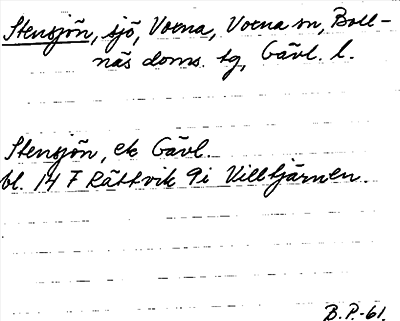 Stensjön, sjö, Voxna, Voxna sn, Boll-
näs doms. tg, Gävl. l.
Stensjön, ek Gävl.
bl. 14 F Rättvik 9i Villtjärnen.
B.P.-61.